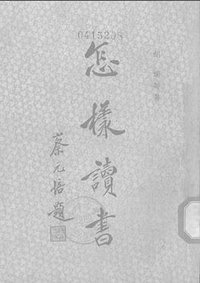 0415208
怎樣讀書
蔡元培題